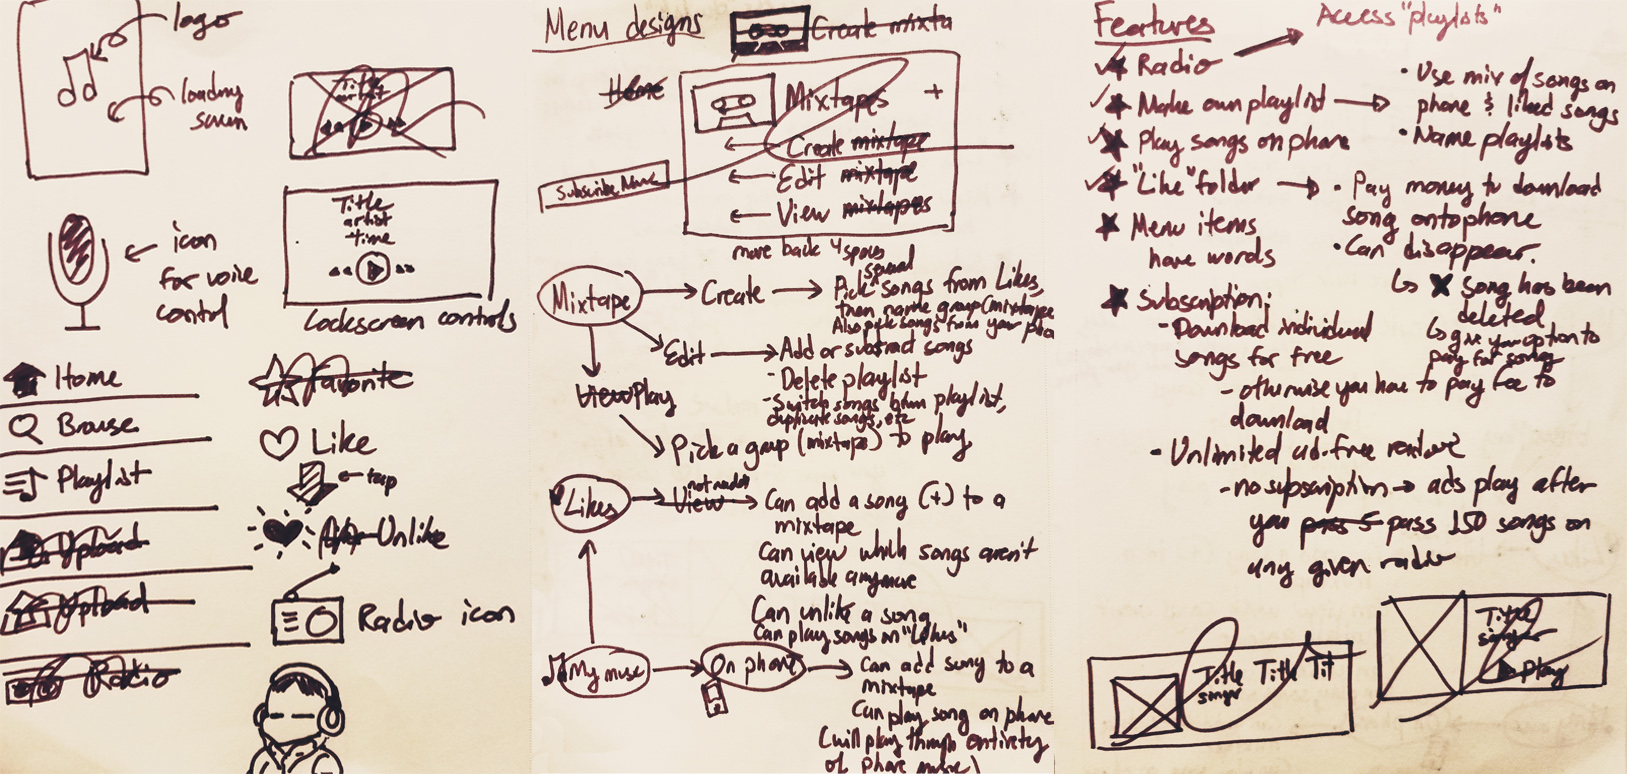 logo
loading
screen
Title
artist
Title
artist
time
Lockscreen controls
icon
for voice
control
Home
Browse
Playlist
Upload
Upload
Radio
Favorite
Like
tap
Unlike
Radio icon
Menu designs
Create mixta
Home
Mixtapes +
Create mixtape
Edit mixtape
View mixtapes
Subscribe Menu
move back 4 spaces
Mixtape
Create
Pick several songs from Likes,
then name group (mixtape
Also pick songs from your pho
Edit
Add or subtract songs
- Delete playlist
- Switch songs btwn playlist,
duplicate songs, etc
View Play
Pick a group (mixtape) to play
Likes
not needed
View
Can add a song (+) to a
mixtape
Can view which songs aren't
available anymore
Can unlike a song
Can play songs on "Likes"
My music
On phone
Can add song to a
mixtape
Can play song on phone
(will play through entirety
of phone music)
Features
Access "playlists"
Radio
Make own playlist
• Use mix of songs on
phone & liked songs
• Name playlists
Play songs on phone
"Like" folder
• Pay money to download
song onto phone
• Can disappear.
Song has been
deleted
give you option to
pay for song
Menu items
have words
Subscription:
- Download individual
songs for free
- otherwise you have to pay fee to
download
• Unlimited ad-free
- no subscription → ads play after
you pass 5 pass 150 songs on
any given radio
Title
singer
Title
Tit
Title
singer
Play